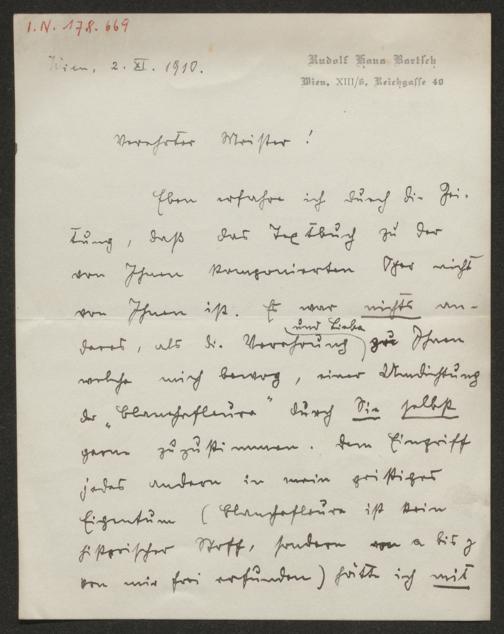 I.N. 178.669
Rudolf Hans Bartsch
Wien, XIII/6, Reichgasse 40
Wien, 2. XI. 1910.
Verehrter Meister!
Eben erfahre ich durch die Zei-
tung, daß das Textbuch zu der
von Ihnen komponierten Oper nicht
von Ihnen ist. Es war nichts an-
deres, als die Verehrung und Liebe zu Ihnen
welche mich bewog, einer Umdichtung
der „Blanchefleure" durch Sie selbst
gerne zuzustimmen. Dem Eingriff
jedes andern in mein geistiges
Eigentum (Blanchefleure ist kein
historischer Stoff, sondern von a bis z
von mir frei erfunden) hätte ich mit